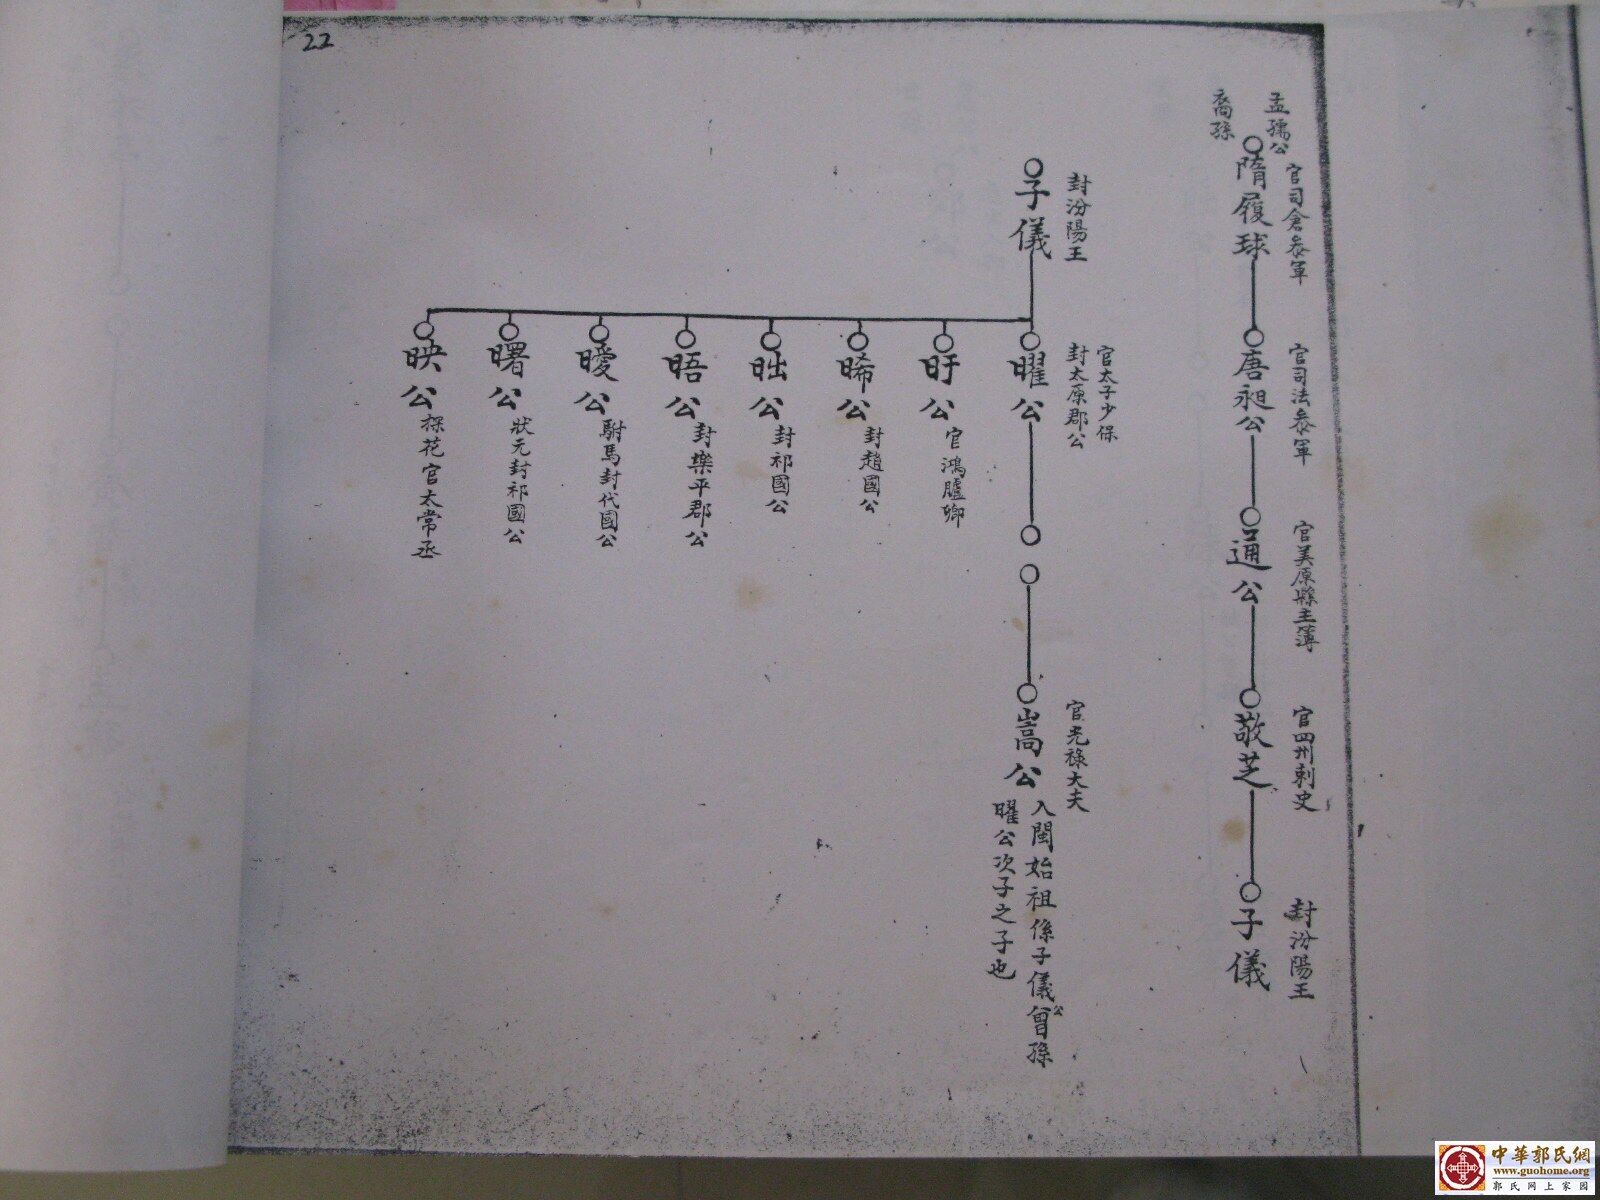 22
孟孺公
裔孫
隋履球
官司倉叅軍
唐昶公
官司法叅軍
通公
官美原縣主簿
敬芝
官四州刺史
子儀
封汾陽王
子儀
封汾陽王
曜公
官太子少保
封太原郡公
嵩公
官光祿大夫
入閩始祖係子儀公曾孫
曜公次子之子也
旴公
官鴻臚卿
晞公
封趙國公
昢公
封祁國公
晤公
封樂平郡公
曖公
駙馬封代國公
曙公
狀元封祁國公
映公
探花官太常丞
中華郭氏網
www.guohome.org
郭氏网上家园